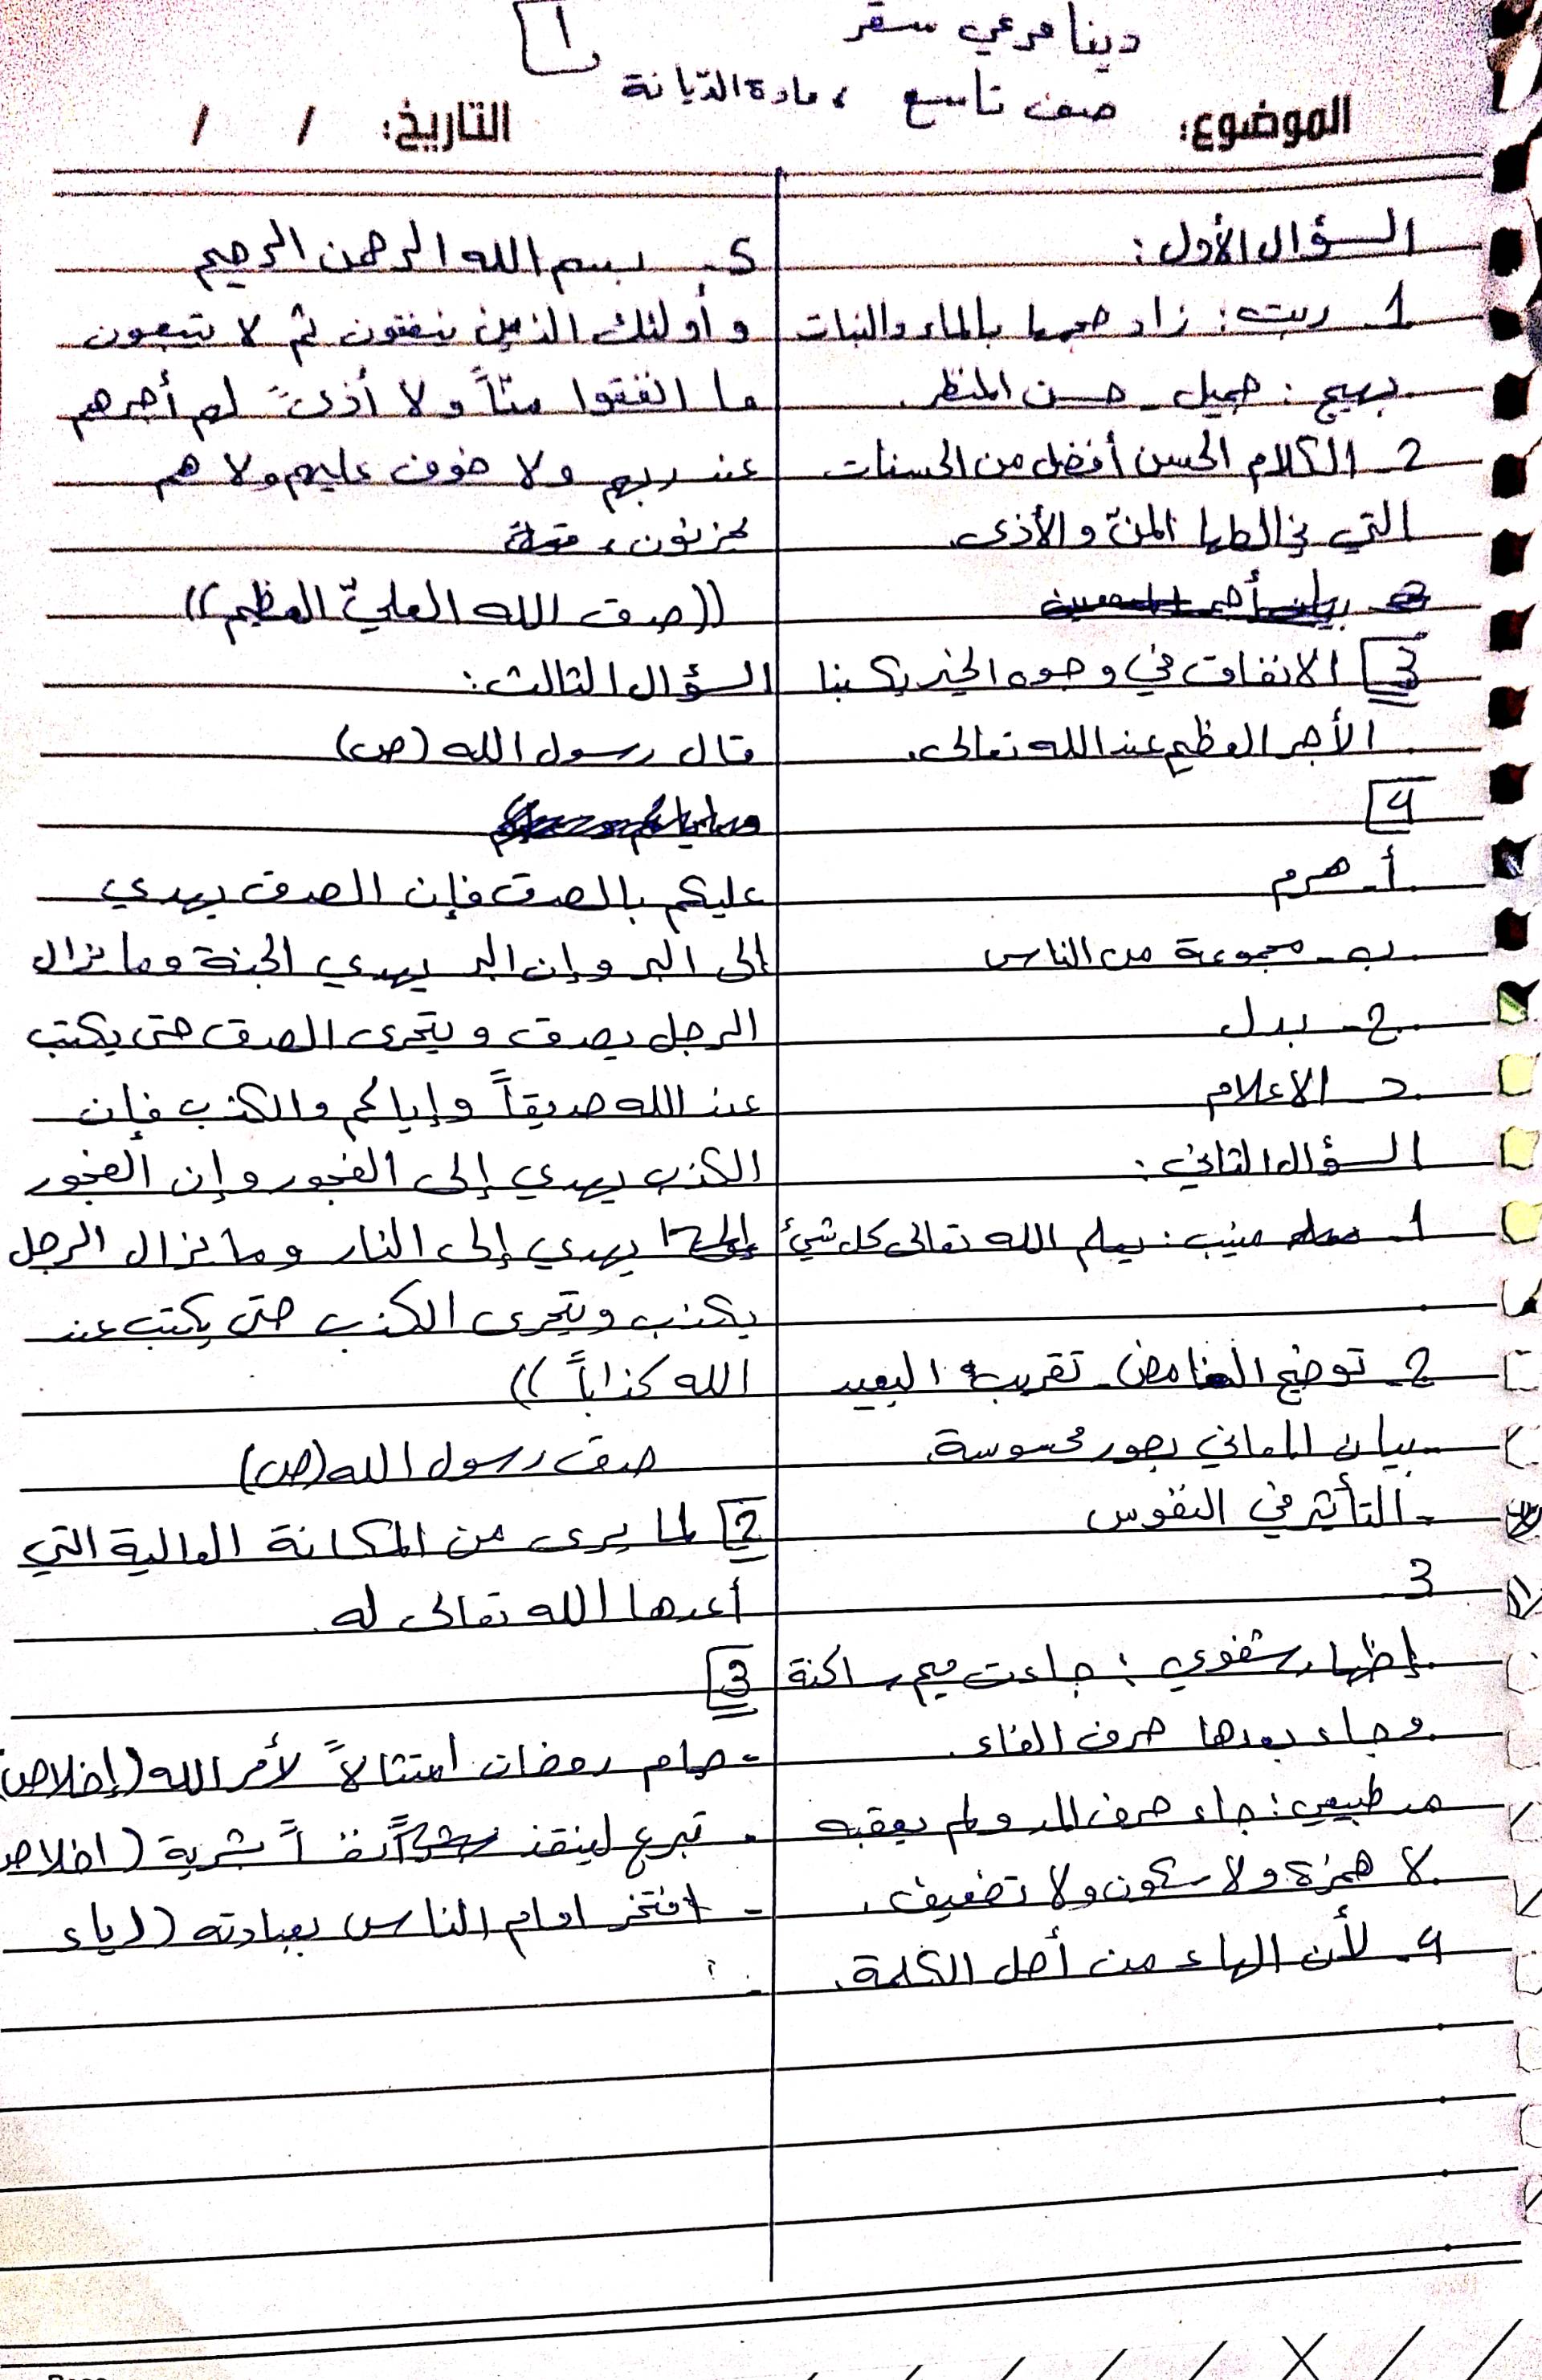 دينا مرعي سقر
1
صف تاسع ، مادة الديانة
الموضوع:
التاريخ: / /
السؤال الأول:
1- ربت: زاد حجمها بالماء والنبات
بهيج: جميل - حسن المنظر.
2- الكلام الحسن أفضل من الحسنات
التي يخالطها المنّ والأذى.
3 الانفاق في وجوه الخير يكسبنا
الأجر العظيم عند الله تعالى.
4
أ- هرم
ب- مجموعة من الناس
ج- بدل
د- الاعلام
السؤال الثاني:
1- منيب: يعلم الله تعالى كل شيئ
2- توضيح الغامض - تقريب البعيد
- بيان المعاني بصور محسوسة
- التأثير في النفوس
3
إظهار شفوي: جاءت ميم ساكنة
وجاء بعدها حرف الفاء.
مد طبيعي: جاء حرف المد ولم يعقبه
لا همزة ولا سكون ولا تضعيف.
4- لأن الهاء من أصل الكلمة.
5- بسم الله الرحمن الرحيم
وأولئك الذين ينفقون ثم لا يتبعون
ما انفقوا منّاً ولا أذىً لهم أجرهم
عند ربهم ولا خوف عليهم ولا هم
يحزنون
((صدق الله العليّ العظيم))
السؤال الثالث:
قال رسول الله (ص)
عليكم بالصدق فإن الصدق يهدي
إلى البر وإن البر يهدي الجنة وما يزال
الرجل يصدق ويتحرى الصدق حتى يكتب
عند الله صديقاً وإياكم والكذب فإن
الكذب يهدي إلى الفجور وإن الفجور
يهدي إلى النار وما يزال الرجل
يكذب ويتحرى الكذب حتى يكتب عند
الله كذاباً))
صدق رسول الله (ص)
2 لما يرى من المكانة العالية التي
أعدها الله تعالى له.
3
- صام رمضان امتثالاً لأمر الله (إخلاص)
- تبرع لينقذ نفساً بشرية (اخلاص
- افتخر امام الناس بعبادته (رياء